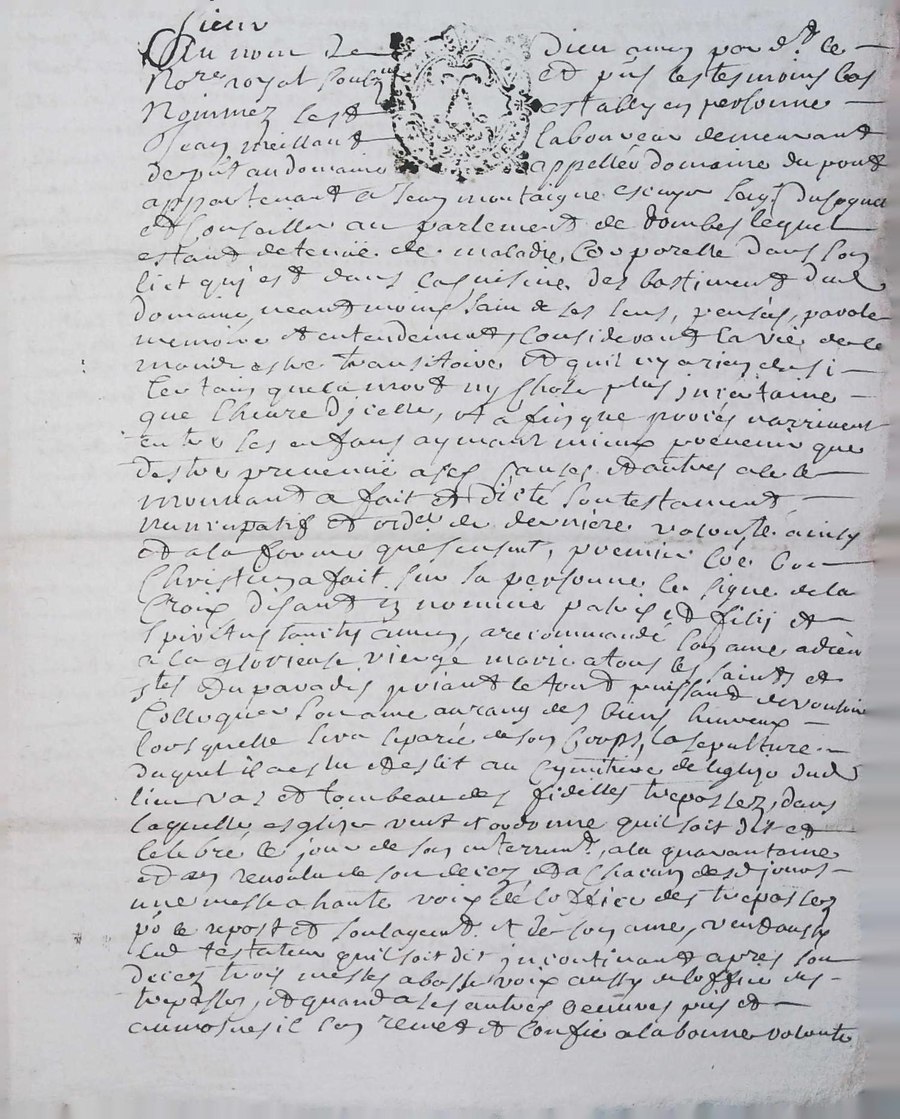 Sieur
Au nom de Dieu amen par d.t le
No.re royal soub.ne et p̃ns les tesmoins bas
Nommez est estably en personne
Jean meillant laboureur demeurant
de p̃nt au domaine appellée domaine du pont
appartenant a Jean montaigne escuyer Seig.r
et Conseiller au parlement de dombes lequel
estant detenue de maladie Corporelle dans son
lict qui est dans la cuisine des bastiment dud
domaine, neantmoins sain de ses sens, pensées, parole
memoire et entendement, Considerant la vie de ce
monde estre transitoire et quil ny a rien de si
certain que la mort ny chose plus incertaine
que lheure dicelle, et a fin que procés narrivent
entre les enfans aymant mieux prevenir que
destre prevenue a ses causes et autres a ce le
mouvant a fait et dicté son testament
nuncupatif et ord.e de derniere volonté ainsy
et a la forme que sensuit, premier coe bon
Christien a fait sur sa personne le signe de la
Croix disant in nomine patris et filij et
spiritus sancty amen, a recommandé son ame a dieu
a la glorieuse vierge marie a tous les saints et
stes du paradis priant le tout puissant de vouloir
Colloquer son ame au rang des biens heureux
lors quelle sera separée de son Corps, la sepulture
duquel il a eslu et eslit au Cymitiere de leglize dud
lieu et tombeau des fidelles trepassez, dans
laquelle esglize veut et ordonne quil soit dit et
Celebré le jour de son enterrem.t, a la quarantaine
et au revolu de son decez et a chacun desd jours
une messe a haute voix de loffice des trepassez
po.r le repost et soulagem.t de son ame, veut aussy
led testateur quil soit dit incontinant apres son
decez trois messes a basse voix aussy de loffice des
trepassez, et quand a ses autres oeuvres pies et
aumosnes il sen remet et Confie a la bonne volonté